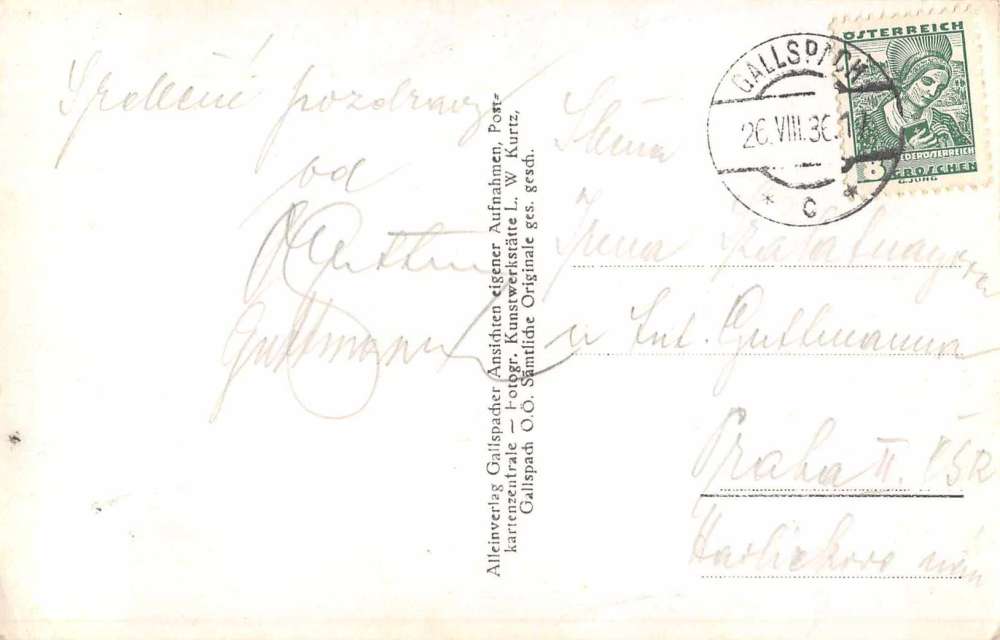 Srdečné pozdravy
od
Guttmann
Alleinverlag Gallspacher Ansichten eigener Aufnahmen, Post=
kartenzentrale — Fotogr. Kunstwerkstätte L. W Kurtz,
Gallspach O.Ö. Sämtliche Originale ges. gesch.
GALLSPACH
26.VIII.36.17
* C *
ÖSTERREICH
NIEDERÖSTERREICH
GROSCHEN
G.JUNG
Slečna
Irena
u Ant. Guttmanna
Praha II. ČSR
Havlíčkovo nám